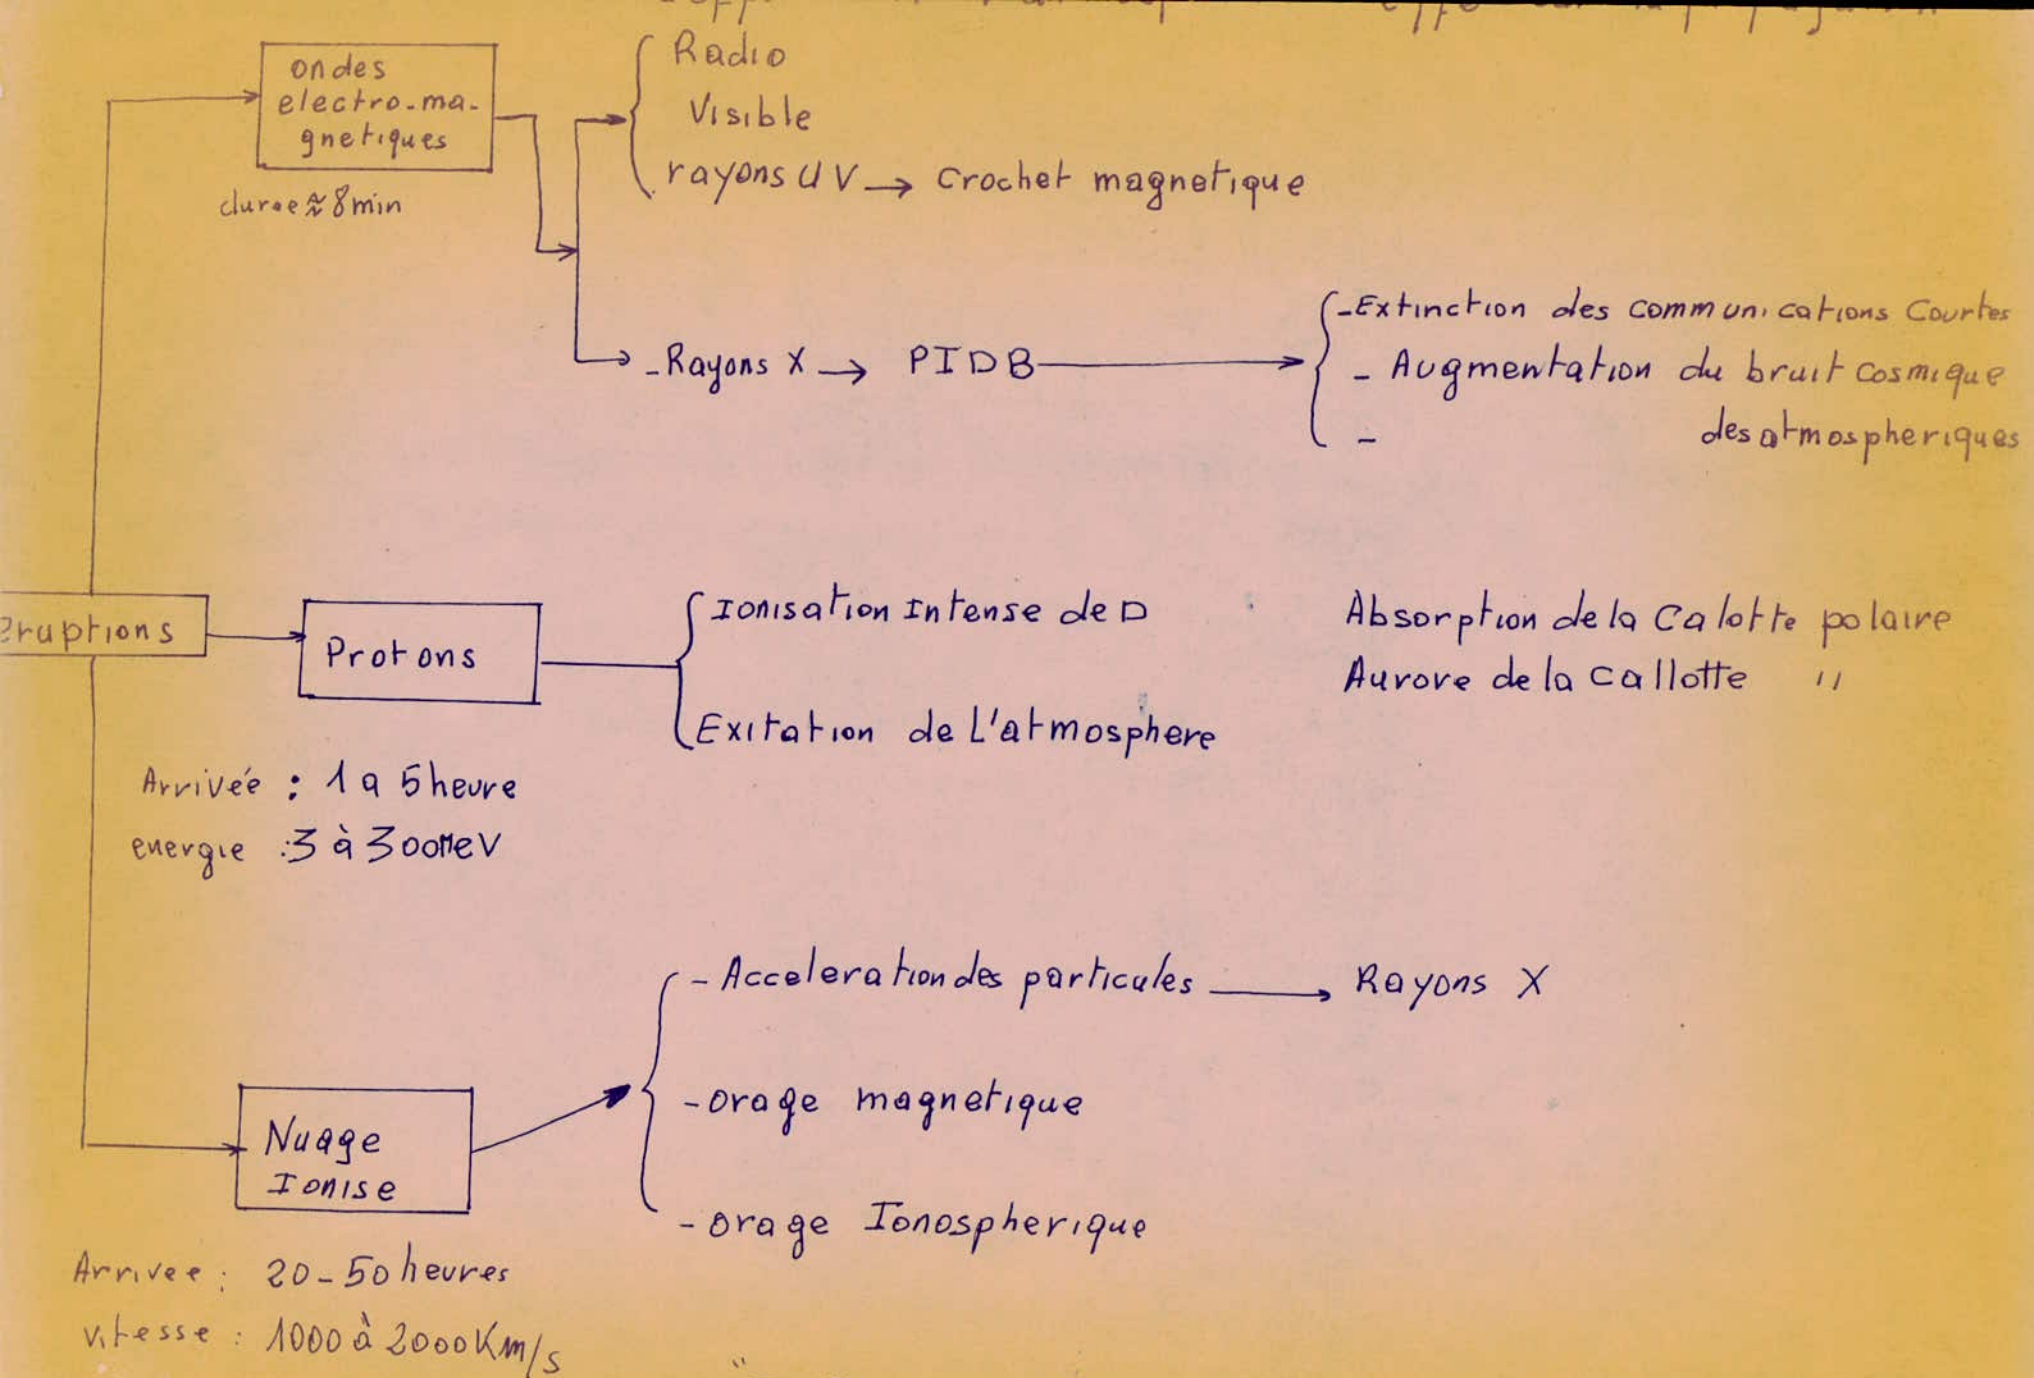 ondes
electro-ma-
gnetiques
duree ≈ 8min
Radio
Visible
rayons UV → Crochet magnetique
- Rayons X → PIDB
- Extinction des communications Courtes
- Augmentation du bruit cosmique
- des atmospheriques
eruptions
Protons
Ionisation Intense de D
Exitation de L'atmosphere
Absorption de la Calotte polaire
Aurore de la Callotte "
Arrivée : 1 a 5 heure
energie : 3 à 300MeV
- Acceleration des particules → Rayons X
- orage magnetique
- orage Ionospherique
Nuage
Ionise
Arrivee : 20-50 heures
vitesse : 1000 à 2000 Km/s